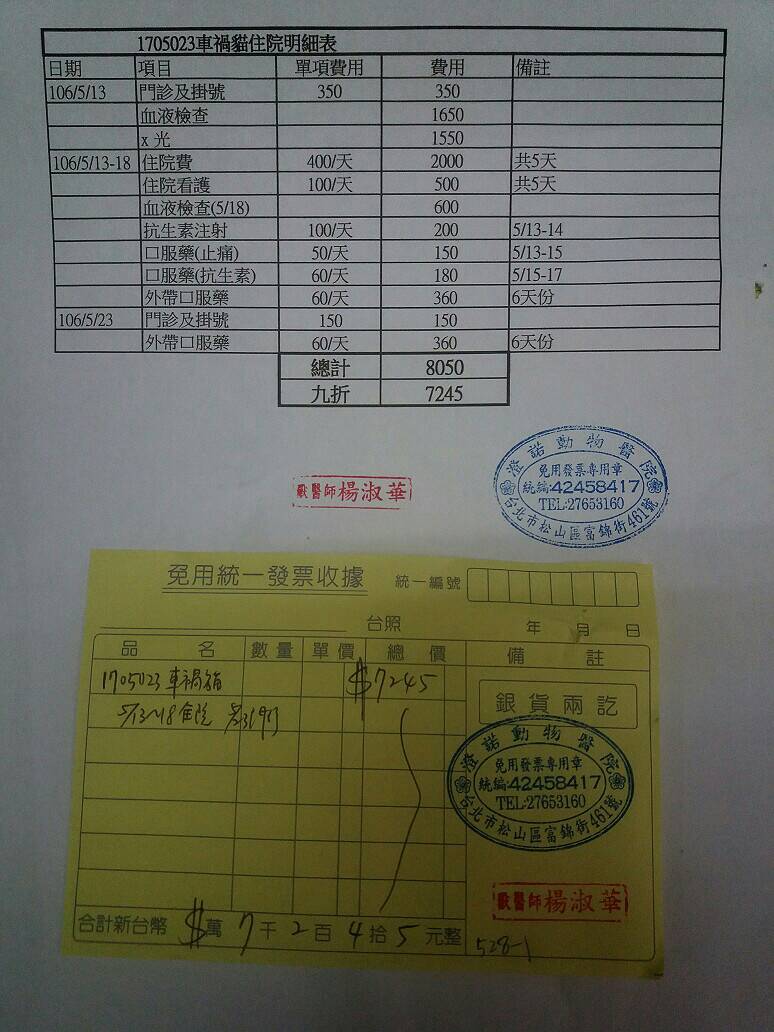 1705023車禍貓住院明細表
日期 項目 單項費用 費用 備註
106/5/13 門診及掛號 350 350
血液檢查 1650
x 光 1550
106/5/13-18 住院費 400/天 2000 共5天
住院看護 100/天 500 共5天
血液檢查(5/18) 600
抗生素注射 100/天 200 5/13-14
口服藥(止痛) 50/天 150 5/13-15
口服藥(抗生素) 60/天 180 5/15-17
外帶口服藥 60/天 360 6天份
106/5/23 門診及掛號 150 150
外帶口服藥 60/天 360 6天份
總計 8050
九折 7245
澄諾動物醫院
免用發票專用章
統編:42458417
TEL:27653160
台北市松山區富錦街461號
獸醫師楊淑華
免用統一發票收據 統一編號
台照 年 月 日
品名 數量 單價 總價 備註
1705023車禍貓 $7245
5/13~18住院
銀貨兩訖
澄諾動物醫院
免用發票專用章
統編:42458417
TEL:27653160
台北市松山區富錦街461號
獸醫師楊淑華
合計新台幣 $萬7千2百4拾5元整
528-1